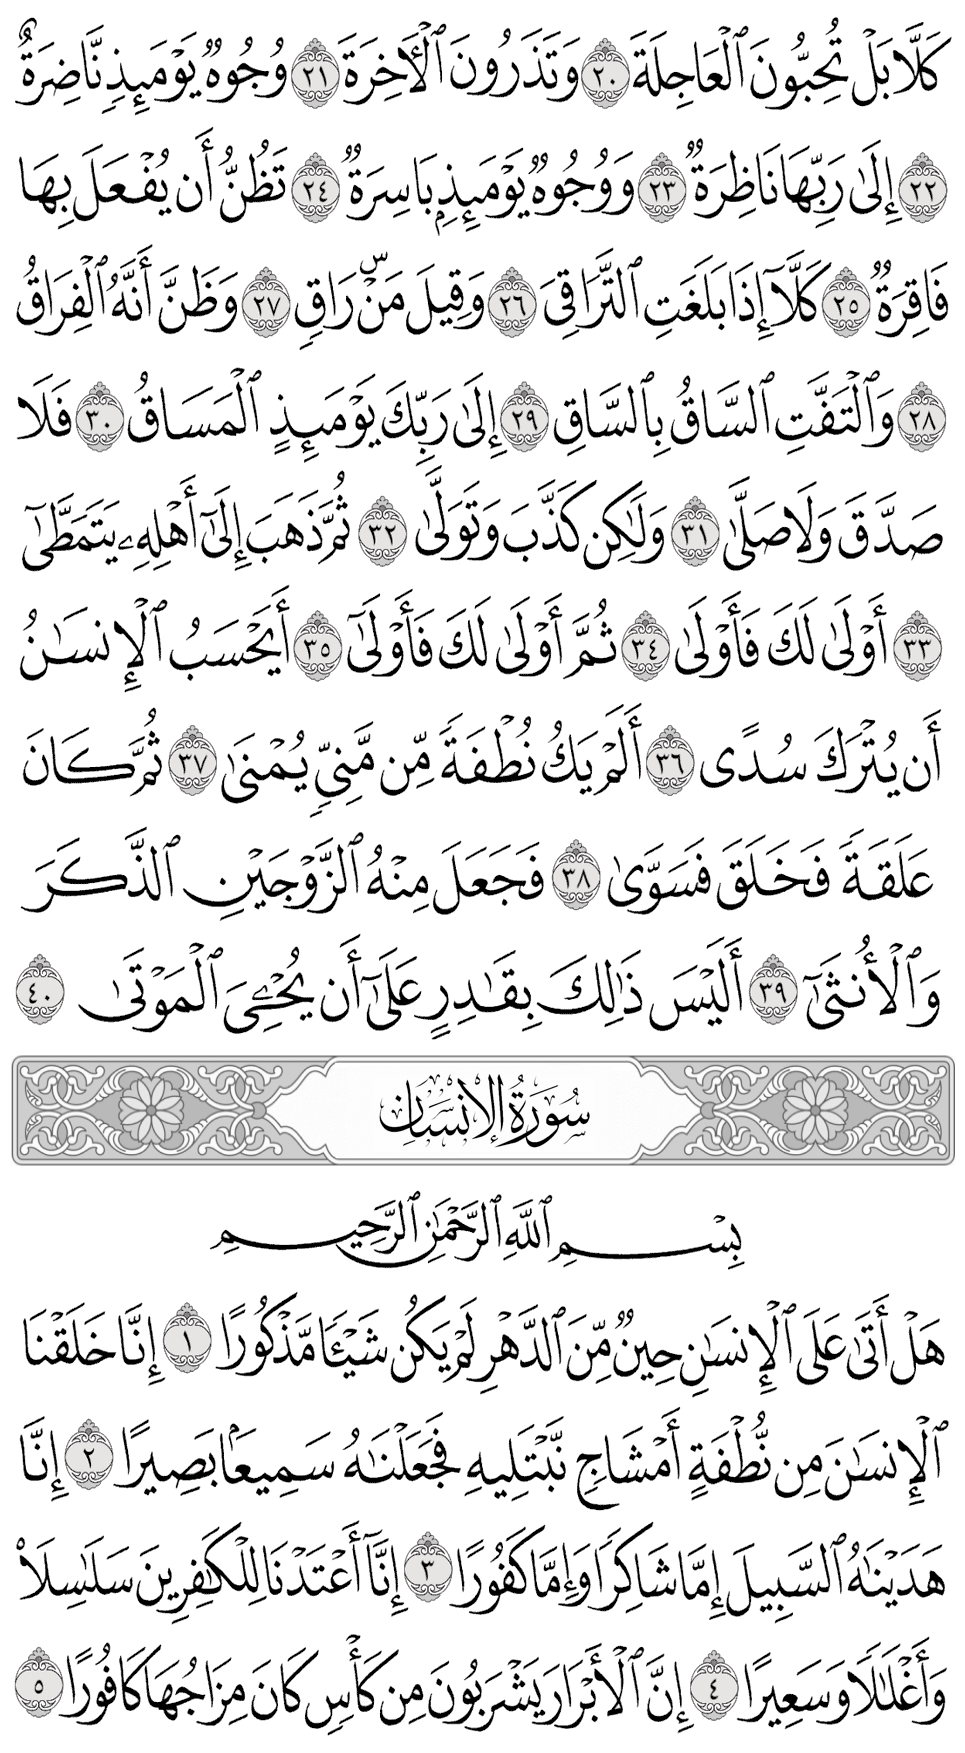 كَلَّا بَلْ تُحِبُّونَ ٱلْعَاجِلَةَ ٢٠ وَتَذَرُونَ ٱلْـَٔاخِرَةَ ٢١ وُجُوهٌ يَوْمَئِذٍ نَّاضِرَةٌ
٢٢ إِلَىٰ رَبِّهَا نَاظِرَةٌ ٢٣ وَوُجُوهٌ يَوْمَئِذِۭ بَاسِرَةٌ ٢٤ تَظُنُّ أَن يُفْعَلَ بِهَا
فَاقِرَةٌ ٢٥ كَلَّآ إِذَا بَلَغَتِ ٱلتَّرَاقِىَ ٢٦ وَقِيلَ مَنْۜ رَاقٍ ٢٧ وَظَنَّ أَنَّهُ ٱلْفِرَاقُ
٢٨ وَٱلْتَفَّتِ ٱلسَّاقُ بِٱلسَّاقِ ٢٩ إِلَىٰ رَبِّكَ يَوْمَئِذٍ ٱلْمَسَاقُ ٣٠ فَلَا
صَدَّقَ وَلَا صَلَّىٰ ٣١ وَلَٰكِن كَذَّبَ وَتَوَلَّىٰ ٣٢ ثُمَّ ذَهَبَ إِلَىٰٓ أَهْلِهِۦ يَتَمَطَّىٰٓ
٣٣ أَوْلَىٰ لَكَ فَأَوْلَىٰ ٣٤ ثُمَّ أَوْلَىٰ لَكَ فَأَوْلَىٰٓ ٣٥ أَيَحْسَبُ ٱلْإِنسَٰنُ
أَن يُتْرَكَ سُدًى ٣٦ أَلَمْ يَكُ نُطْفَةً مِّن مَّنِىٍّ يُمْنَىٰ ٣٧ ثُمَّ كَانَ
عَلَقَةً فَخَلَقَ فَسَوَّىٰ ٣٨ فَجَعَلَ مِنْهُ ٱلزَّوْجَيْنِ ٱلذَّكَرَ
وَٱلْأُنثَىٰٓ ٣٩ أَلَيْسَ ذَٰلِكَ بِقَٰدِرٍ عَلَىٰٓ أَن يُحْـِۧىَ ٱلْمَوْتَىٰ ٤٠
سُورَةُ الإِنْسَانِ
بِسْمِ ٱللَّهِ ٱلرَّحْمَٰنِ ٱلرَّحِيمِ
هَلْ أَتَىٰ عَلَى ٱلْإِنسَٰنِ حِينٌ مِّنَ ٱلدَّهْرِ لَمْ يَكُن شَيْـًٔا مَّذْكُورًا ١ إِنَّا خَلَقْنَا
ٱلْإِنسَٰنَ مِن نُّطْفَةٍ أَمْشَاجٍ نَّبْتَلِيهِ فَجَعَلْنَٰهُ سَمِيعًۢا بَصِيرًا ٢ إِنَّا
هَدَيْنَٰهُ ٱلسَّبِيلَ إِمَّا شَاكِرًا وَإِمَّا كَفُورًا ٣ إِنَّآ أَعْتَدْنَا لِلْكَٰفِرِينَ سَلَٰسِلَا۟
وَأَغْلَٰلًا وَسَعِيرًا ٤ إِنَّ ٱلْأَبْرَارَ يَشْرَبُونَ مِن كَأْسٍ كَانَ مِزَاجُهَا كَافُورًا ٥